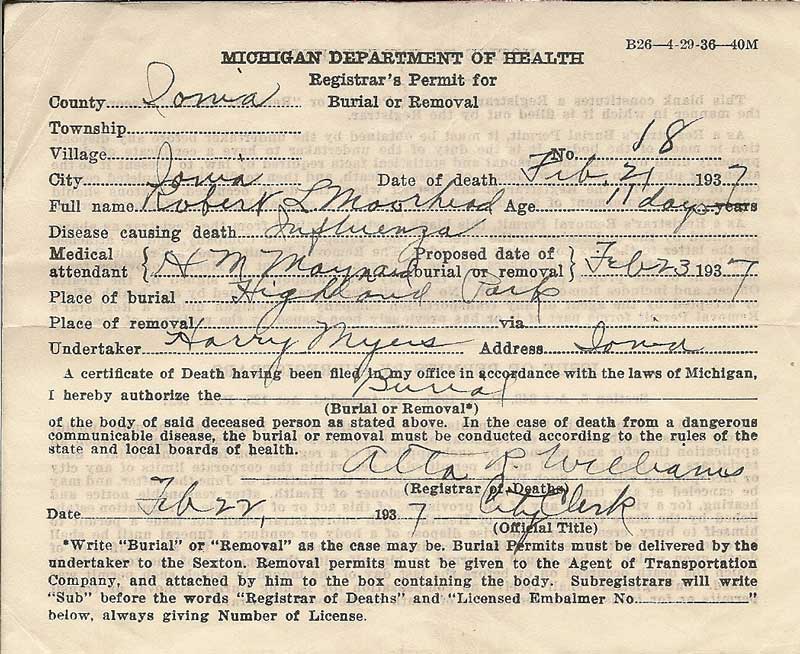 B26—4-29-36—40M
MICHIGAN DEPARTMENT OF HEALTH
Registrar's Permit for
County Ionia Burial or Removal
Township
Village No. 18
City Ionia Date of death Feb. 21 1937
Full name Robert L Moorhead Age 11 days years
Disease causing death Influenza
Medical attendant { H M Maynard Proposed date of burial or removal } Feb 23 1937
Place of burial Highland Park
Place of removal via
Undertaker Harry Myers Address Ionia
A certificate of Death having been filed in my office in accordance with the laws of Michigan,
I hereby authorize the Burial
(Burial or Removal*)
of the body of said deceased person as stated above. In the case of death from a dangerous
communicable disease, the burial or removal must be conducted according to the rules of the
state and local boards of health.
Alta R. Williams
(Registrar of Deaths)
Date Feb 22, 1937 City Clerk
(Official Title)
*Write "Burial" or "Removal" as the case may be. Burial Permits must be delivered by the
undertaker to the Sexton. Removal permits must be given to the Agent of Transportation
Company, and attached by him to the box containing the body. Subregistrars will write
"Sub" before the words "Registrar of Deaths" and "Licensed Embalmer No. "
below, always giving Number of License.